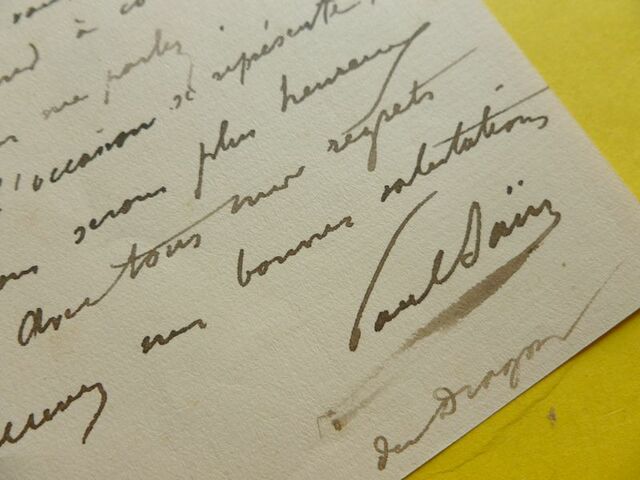 à co
me parlez
l'occasion se représente,
serons plus heureux
Avec tous mes regrets
mes bonnes salutations
Paul Saïn
du Dragon